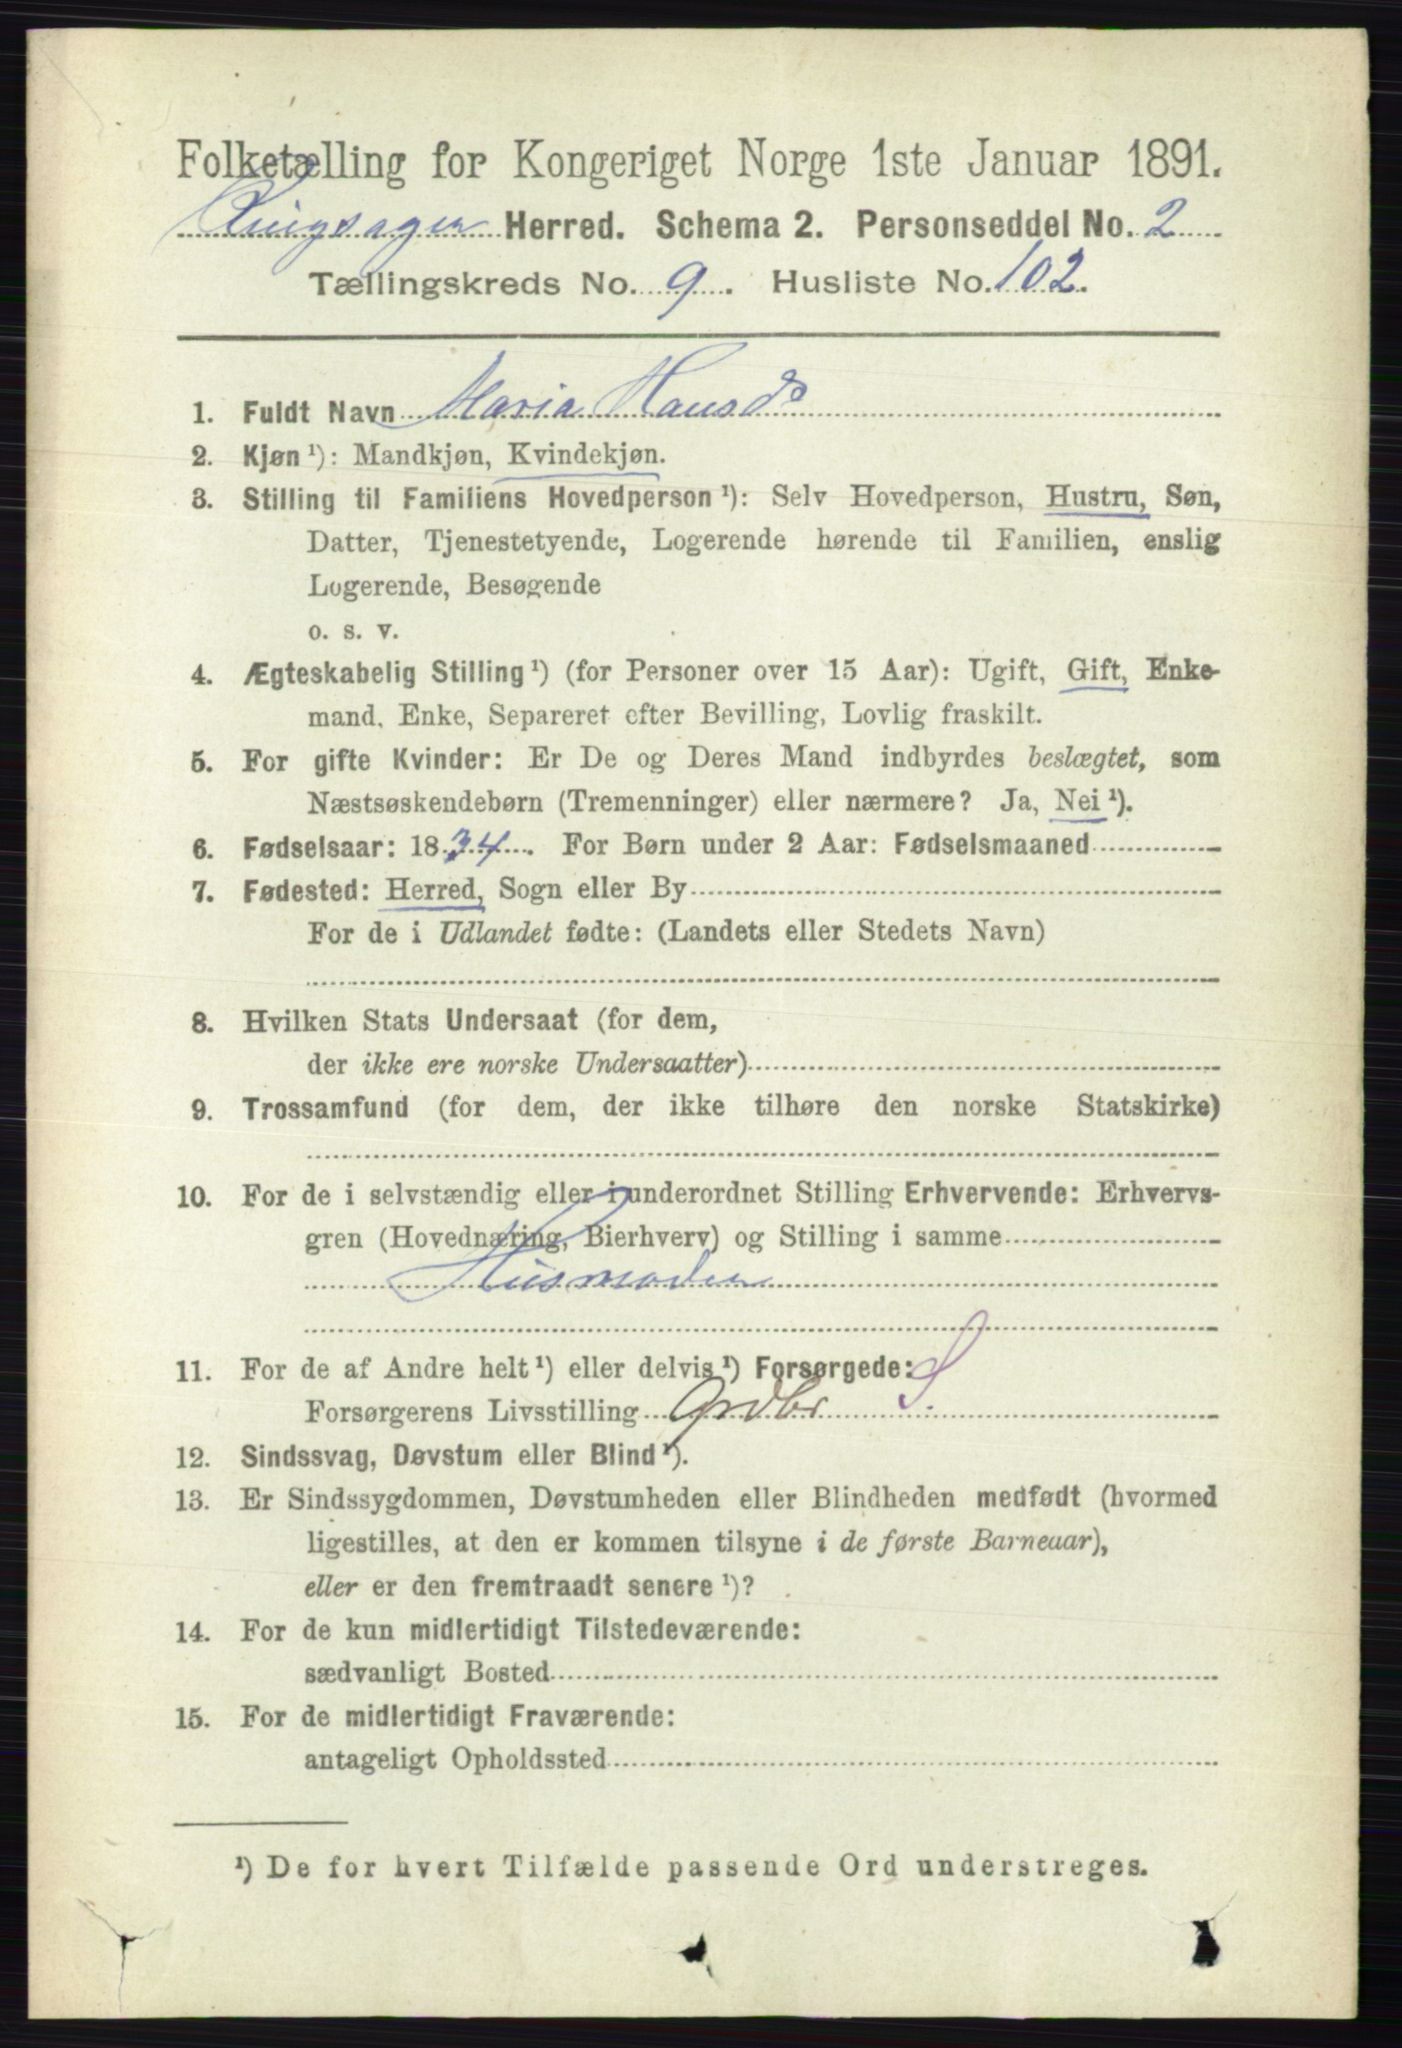 Folketælling for Kongeriget Norge 1ste Januar 1891.
Ringsager Herred. Schema 2. Personseddel No. 2
Tællingskreds No. 9. Husliste No. 102.
1. Fuldt Navn Maria Hansd
2. Kjøn ¹): Mandkjøn, Kvindekjøn.
3. Stilling til Familiens Hovedperson ¹): Selv Hovedperson, Hustru, Søn,
Datter, Tjenestetyende, Logerende hørende til Familien, enslig
Logerende, Besøgende
o. s. v.
4. Ægteskabelig Stilling ¹) (for Personer over 15 Aar): Ugift, Gift, Enke-
mand, Enke, Separeret efter Bevilling, Lovlig fraskilt.
5. For gifte Kvinder: Er De og Deres Mand indbyrdes beslægtet, som
Næstsøskendebørn (Tremenninger) eller nærmere? Ja, Nei ¹).
6. Fødselsaar: 1834. For Børn under 2 Aar: Fødselsmaaned
7. Fødested: Herred, Sogn eller By
For de i Udlandet fødte: (Landets eller Stedets Navn)
8. Hvilken Stats Undersaat (for dem,
der ikke ere norske Undersaatter)
9. Trossamfund (for dem, der ikke tilhøre den norske Statskirke)
10. For de i selvstændig eller i underordnet Stilling Erhvervende: Erhvervs-
gren (Hovednæring, Bierhverv) og Stilling i samme
Husmoder
11. For de af Andre helt ¹) eller delvis ¹) Forsørgede: S.
Forsørgerens Livsstilling Grdbr
12. Sindssvag, Døvstum eller Blind ¹).
13. Er Sindssygdommen, Døvstumheden eller Blindheden medfødt (hvormed
ligestilles, at den er kommen tilsyne i de første Barneaar),
eller er den fremtraadt senere ¹)?
14. For de kun midlertidigt Tilstedeværende:
sædvanligt Bosted
15. For de midlertidigt Fraværende:
antageligt Opholdssted
¹) De for hvert Tilfælde passende Ord understreges.